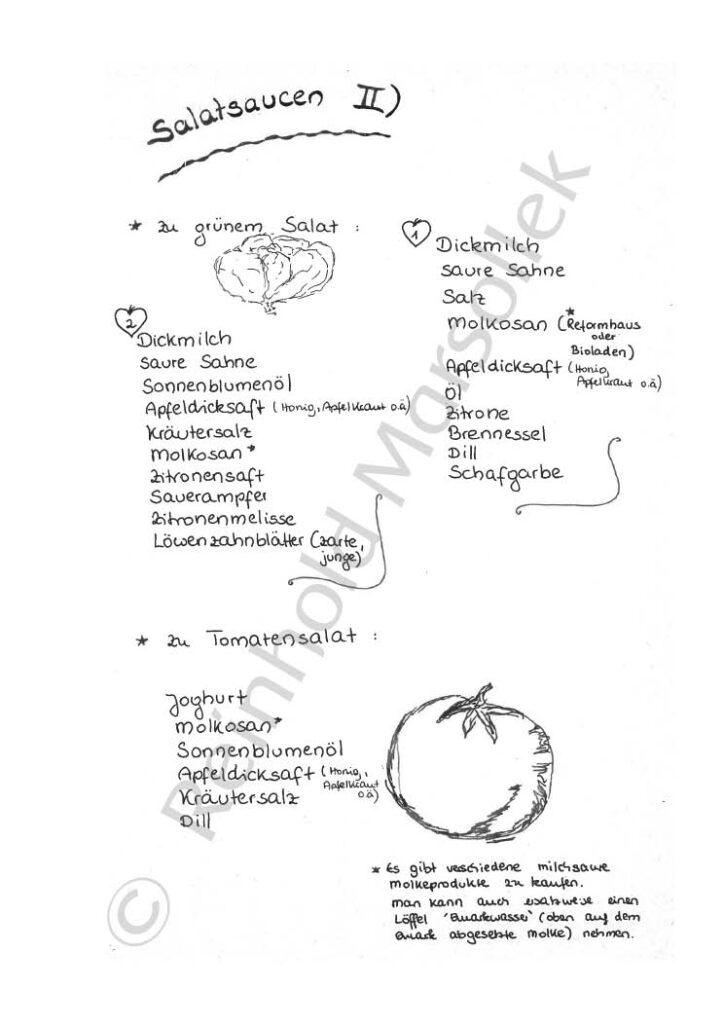 Salatsaucen II)
* zu grünem Salat :
1
Dickmilch
saure Sahne
Salz
Molkosan (*Reformhaus
oder
Bioladen)
Apfeldicksaft (Honig,
Apfelkraut o.ä)
Öl
Zitrone
Brennessel
Dill
Schafgarbe
2
Dickmilch
saure Sahne
Sonnenblumenöl
Apfeldicksaft (Honig, Apfelkraut o.ä)
Kräutersalz
Molkosan *
Zitronensaft
Sauerampfer
Zitronenmelisse
Löwenzahnblätter (zarte,
junge)
* zu Tomatensalat :
Joghurt
Molkosan *
Sonnenblumenöl
Apfeldicksaft (Honig,
Apfelkraut
o.ä)
Kräutersalz
Dill
* Es gibt verschiedene milchsaure
Molkeprodukte zu kaufen.
man kann auch ersatzweise einen
Löffel 'Quarkwasser' (oben auf dem
Quark abgesetzte Molke) nehmen.
© Reinhold Marsollek